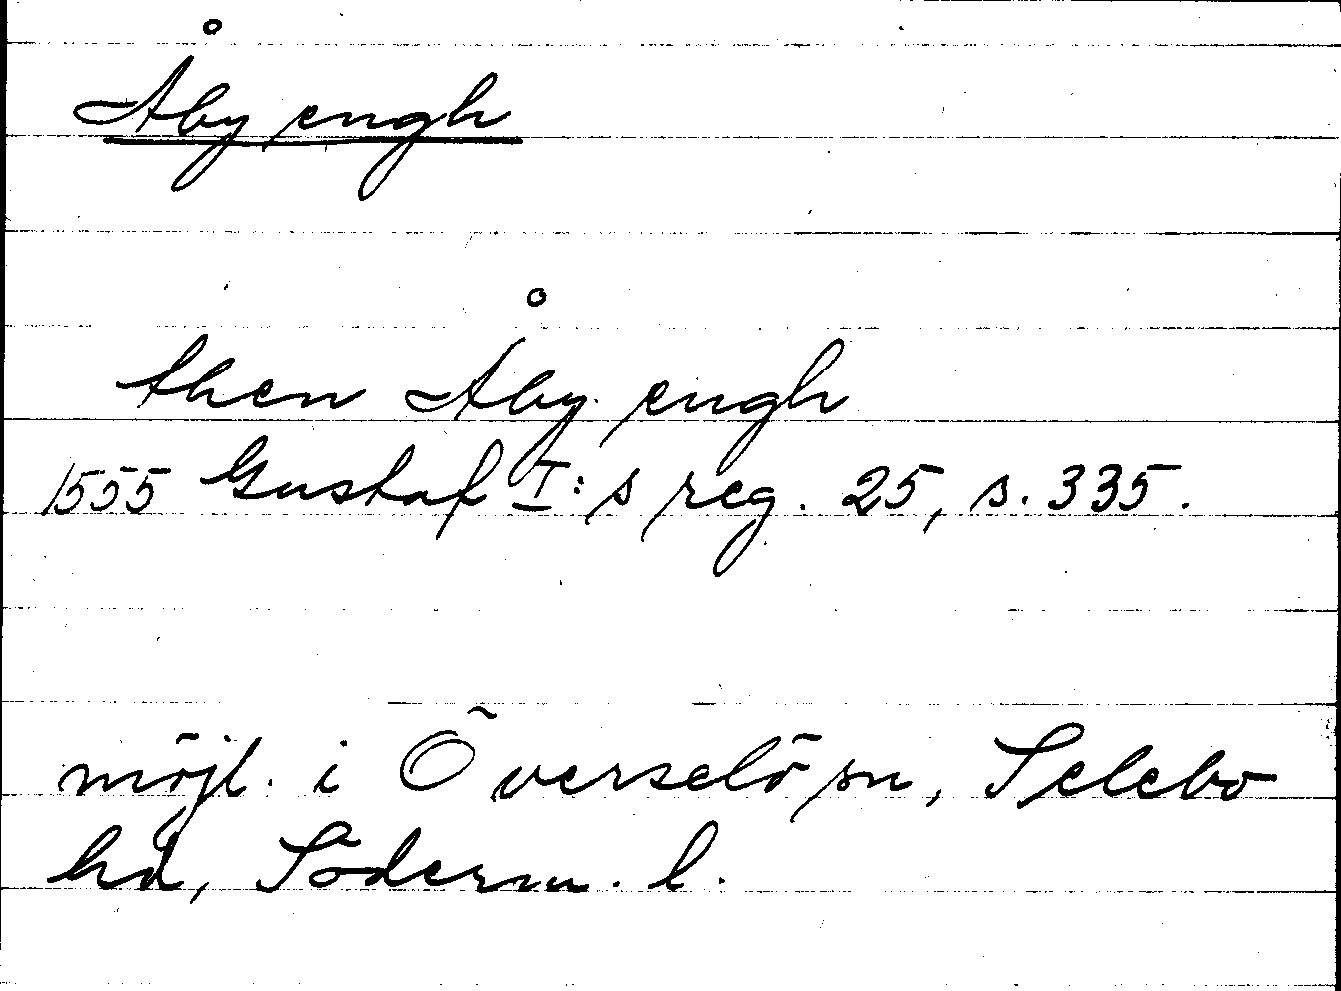 Åby engh
then Åby engh
1555 Gustaf I:s reg. 25, s. 335.
möjl. i Överselö sn, Selebo
hd, Söderm. l.